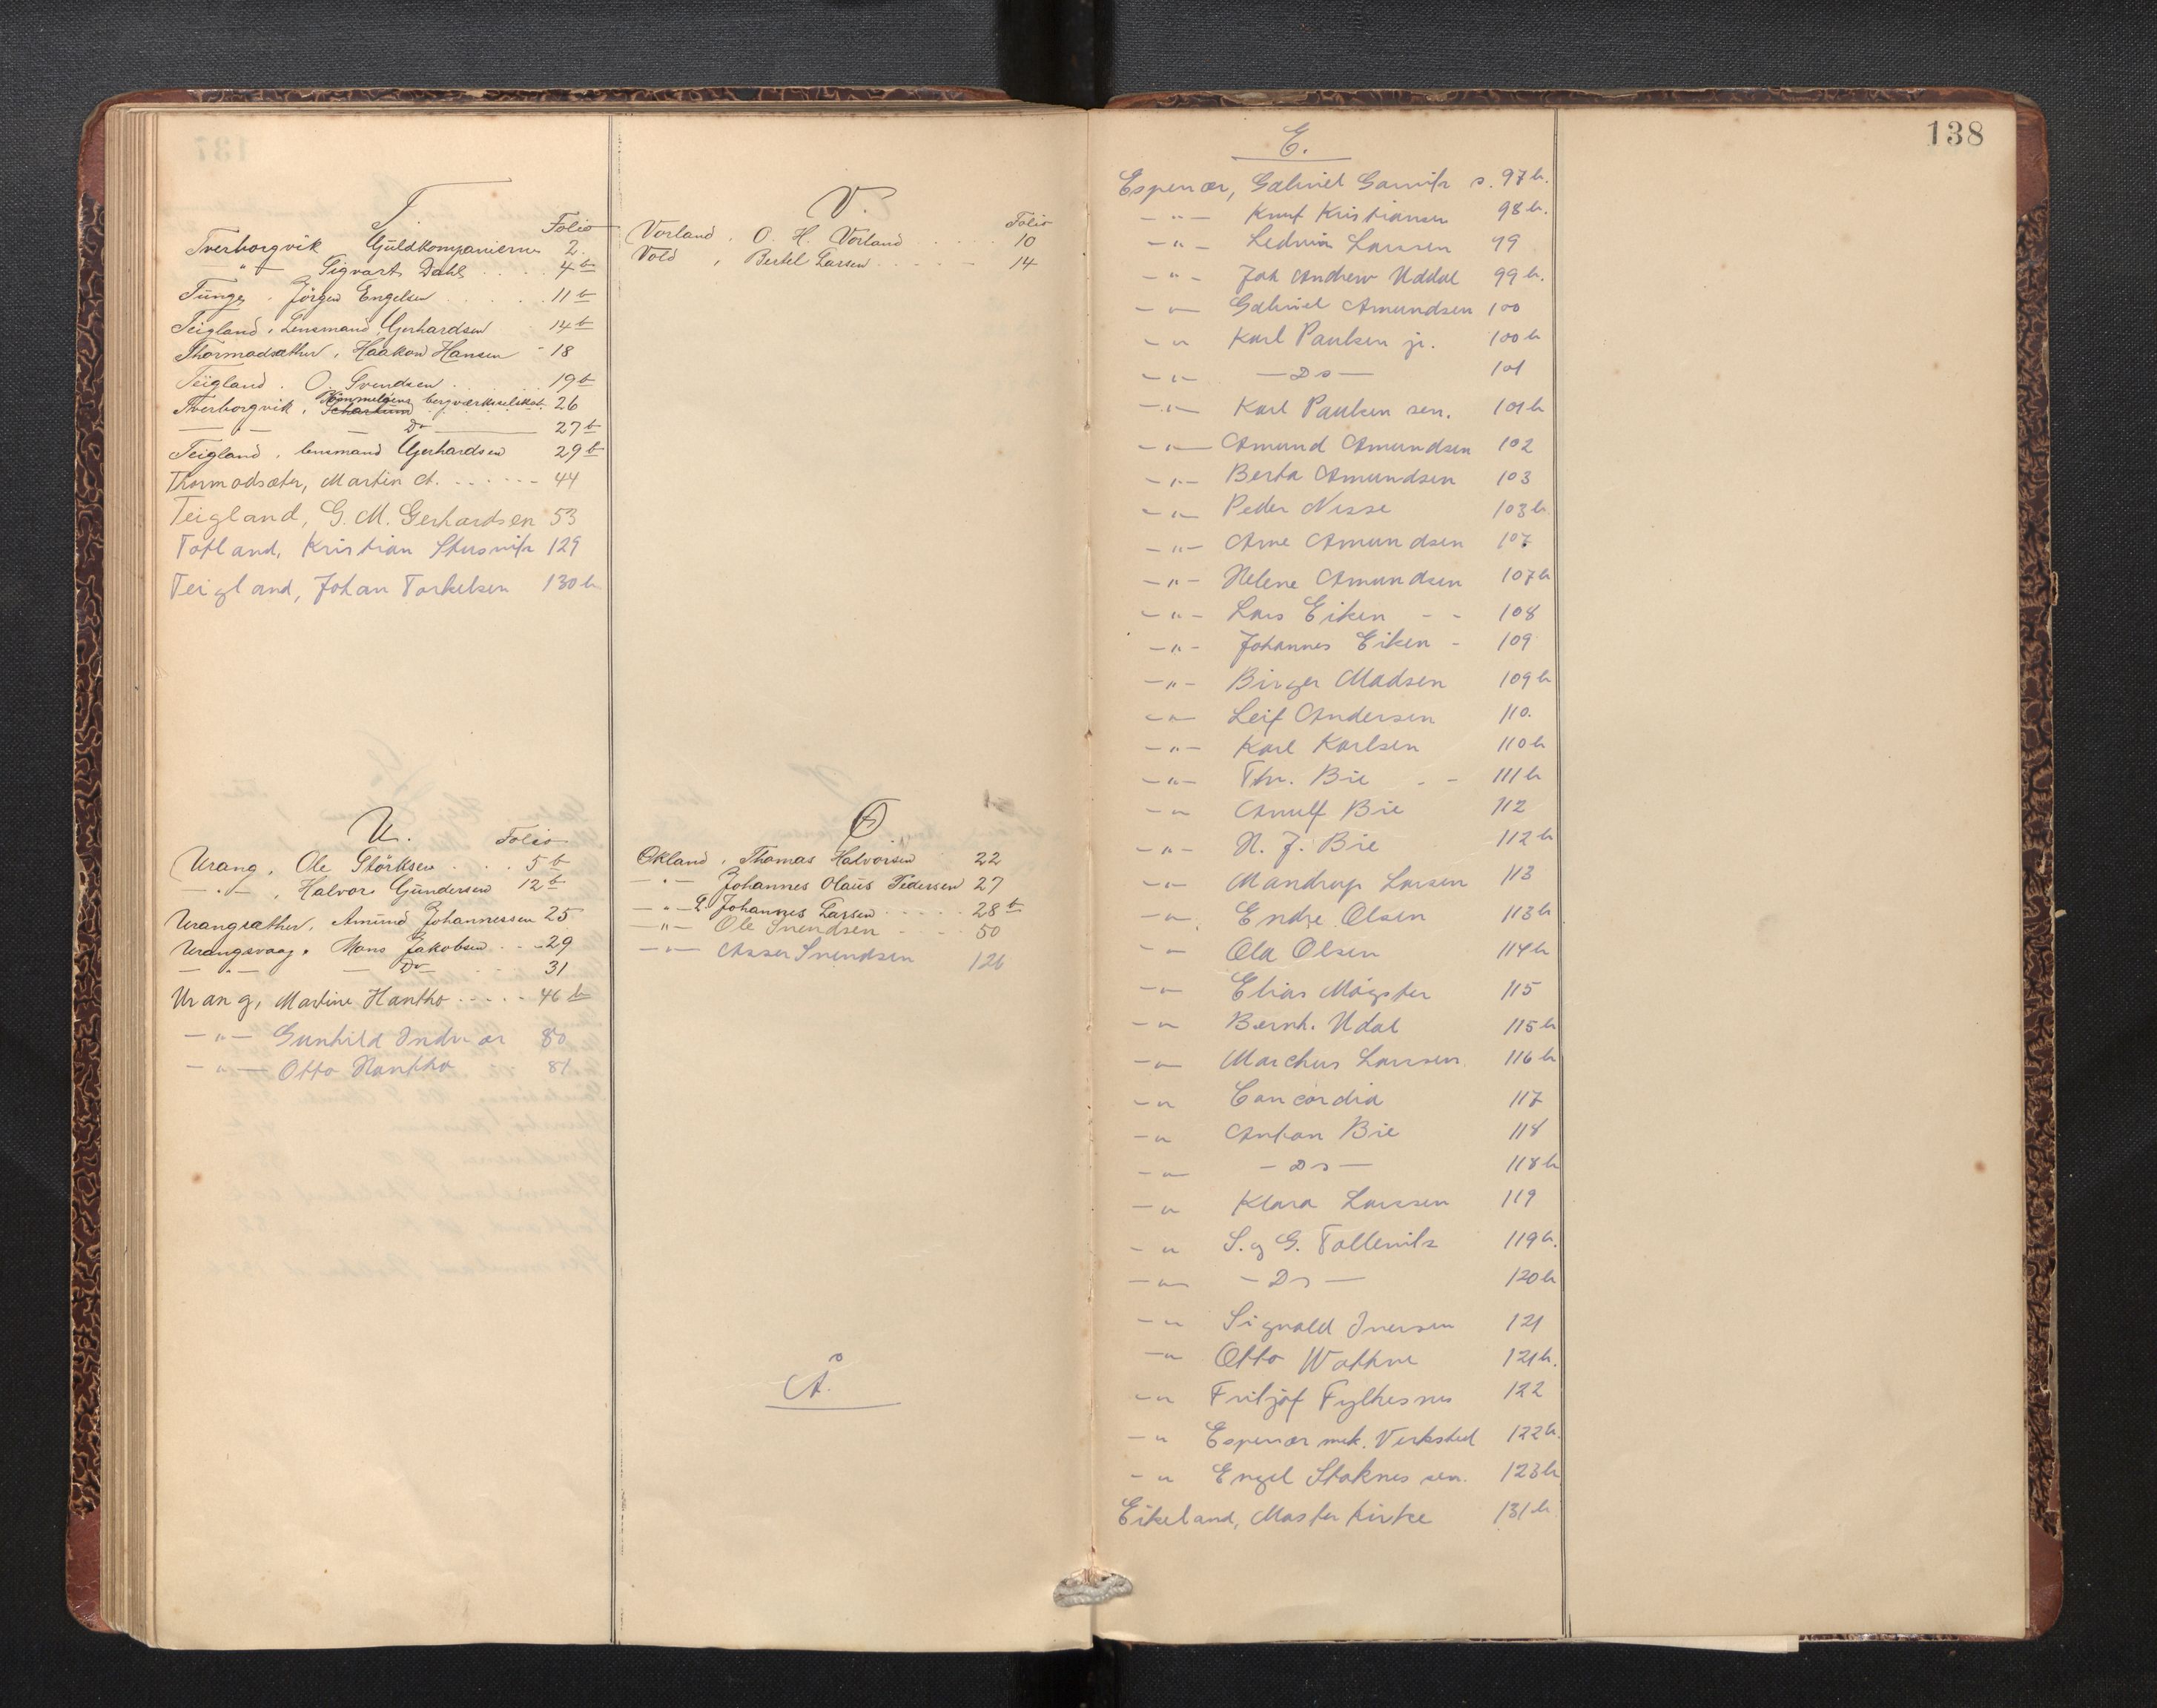 T.
Folio
Tverborgvik Guldkompanierne 2.
" Sigvart Dahl . . . . 4 b
Tunge . Jörgen Engelsen . . . . 11 b
Teigland . Lensmand Gerhardsen 14 b
Thormodsæther , Haakon Hansen - 18
Teigland . O. Svendsen . . . . 19 b
Tverborgvik , bergverkselskab. 26
— " — Do — 27 b
Teigland . lensmand Gerhardsen 29 b
Thormodsæter, Martin A. - - - - - - 44
Teigland, G. M. Gerhardsen 53
Totland, Kristian 129
Teigland, Johan Torkelsen 130 b
U.
Folio
Urang . Ole Störksen . . . 5 b
— " — , Halvor Gundersen 12 b
Urangsæther, Amund Johannessen 25
Urangsvaag . Mons Jakobsen - - - 29
— " — — Do - - 31
Urang, Martine Hantho - - - - 46 b
— " — Gunhild Indreær 80
— " — Otto Hantho 81
V.
Folio
Vorland . O. H. Vorland . . . . 10
Vold , Bertel Larsen . . . . . 14
Ø
Økland , Thomas Halvorsen 22
— " — Johannes Olaus Pedersen 27
— " — L. Johannes Larsen - - - - - 28 b
— " — Ole Svendsen - - - 50
— " — Asser Svendsen 126
Å.
138
E.
Espevær, Gabriel s. 97 b.
— " — Knut Kristiansen 98 b.
— " — Ledvin Larssen 99
— " — Joh Andrew Uddal 99 b.
— " — Gabriel Amundsen 100
— " — Karl Paulsen jr. 100 b
— " — — Do — 101
— " — Karl Paulsen sen. 101 b
— " — Amund Amundsen 102
— " — Berta Amundsen 103
— " — Peder Nesse 103 b
— " — Arne Amundsen 107
— " — Helene Amundsen 107 b
— " — Lars Eiken - - 108
— " — Johannes Eiken - 109
— " — Birger Madsen 109 b
— " — Leif Andersen 110.
— " — Karl Karlsen 110 b
— " — Thr. Bie - - 111 b
— " — Arnulf Bie 112
— " — N. J. Bie 112 b
— " — Mandrup Larsen 113
— " — Endre Olsen 113 b
— " — Ola Olsen 114 b
— " — Elias Møgster 115
— " — Bernh. Udal 115 b
— " — Marchus Larssen 116 b
— " — Concordia 117
— " — Anton Bie 118
— " — — Do — 118 b
— " — Klara Larssen 119
— " — S. og G. 119 b.
— " — — Do — 120 b
— " — Sigvald Iversen 121
— " — Otto Wathne 121 b.
— " — Fritjof Fylkesnes 122
— " — Espevær mek. Verksted 122 b.
— " — Engel Stoknes sen. 123 b
Eikeland, Moster kirke 131 b